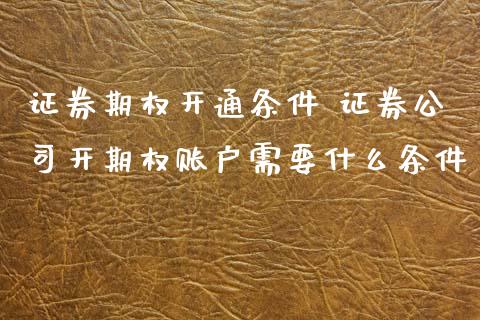 证券期权开通条件 证券公
司开期权账户需要什么条件